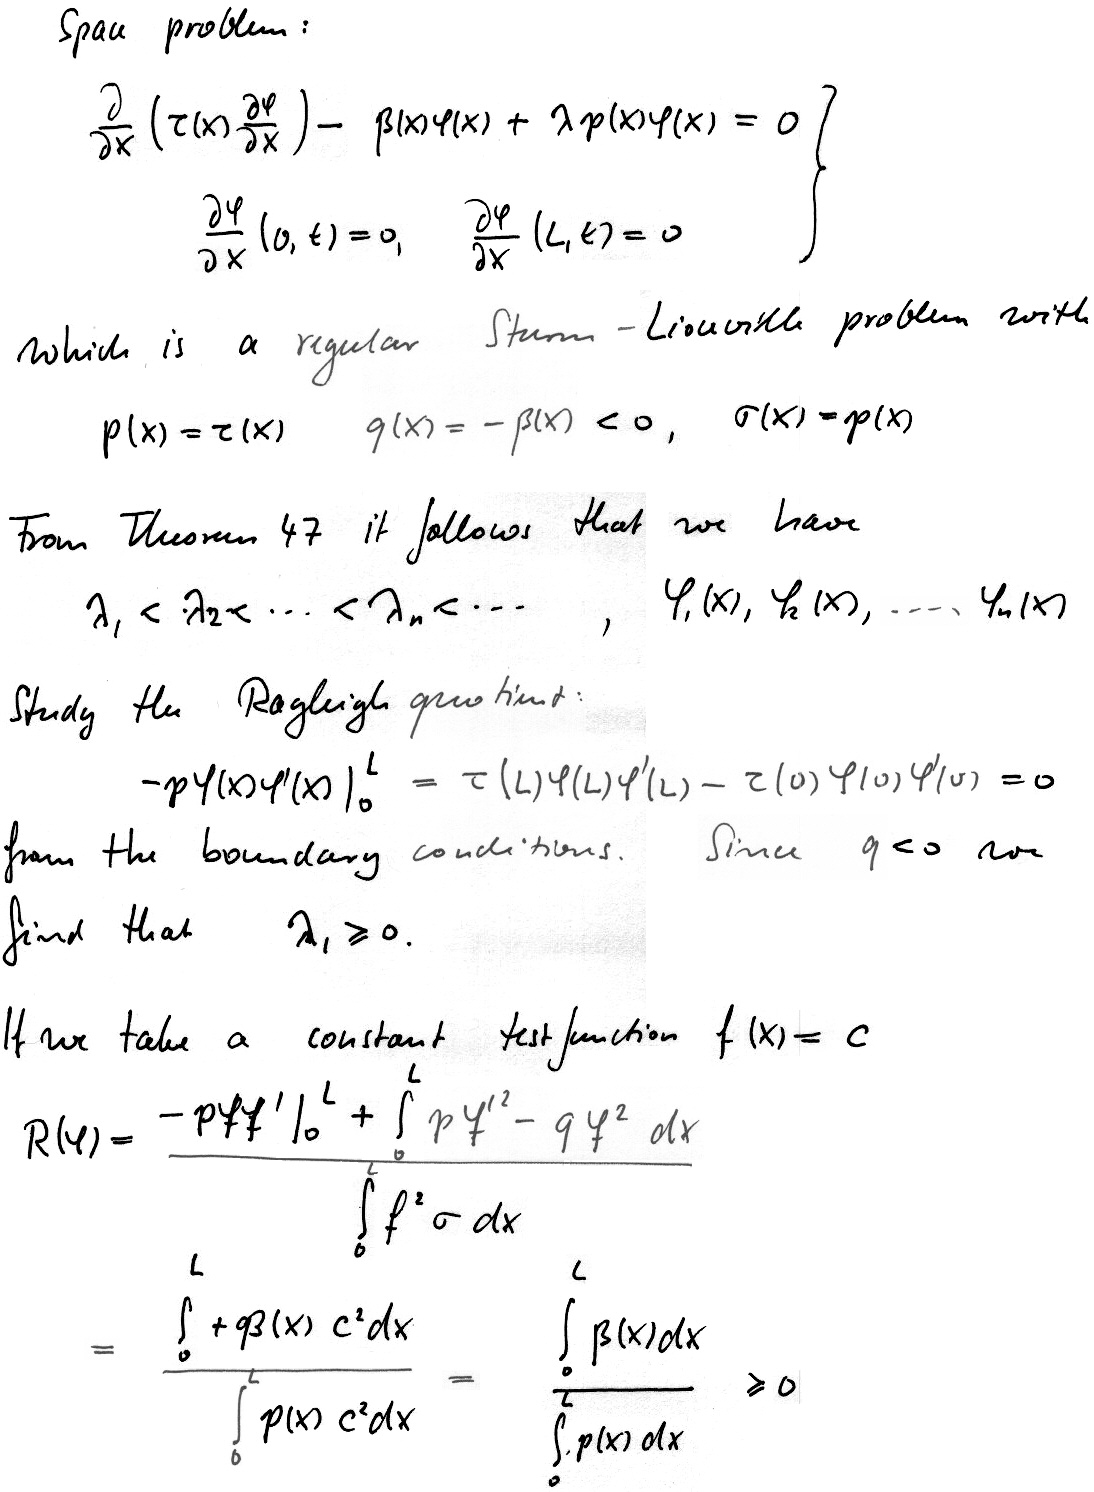 Space problem:
∂/∂x (τ(x) ∂φ/∂x) − β(x)φ(x) + λρ(x)φ(x) = 0 }
∂φ/∂x (0, t) = 0, ∂φ/∂x (L, t) = 0
which is a regular Sturm-Liouville problem with
p(x) = τ(x) q(x) = −β(x) < 0, σ(x) = ρ(x)
From Theorem 47 it follows that we have
λ₁ < λ₂ < ... < λₙ < ... , φ₁(x), φ₂(x), ...., φₙ(x)
Study the Rayleigh quotient:
−pφ(x)φ'(x) |₀ᴸ = τ(L)φ(L)φ'(L) − τ(0)φ(0)φ'(0) = 0
from the boundary conditions. Since q<0 we
find that λ₁ ⩾ 0.
If we take a constant testfunction f(x) = c
R(φ) = (−pff' |₀ᴸ + ∫₀ᴸ pφ'² − qφ² dx) / (∫₀ᴸ f² σ dx)
= (∫₀ᴸ + β(x) c² dx) / (∫₀ᴸ ρ(x) c² dx) = (∫₀ᴸ β(x) dx) / (∫₀ᴸ ρ(x) dx) ⩾ 0